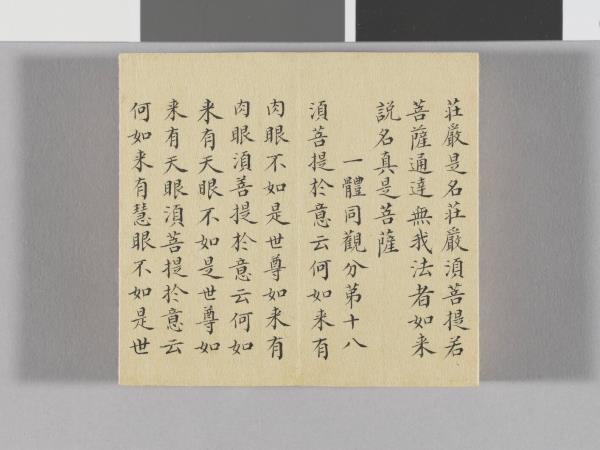 莊嚴是名莊嚴湏菩提若
菩薩通達無我法者如来
説名真是菩薩
一體同觀分第十八
湏菩提於意云何如来有
肉眼不如是世尊如来有
肉眼湏菩提於意云何如
来有天眼不如是世尊如
来有天眼湏菩提於意云
何如来有慧眼不如是世